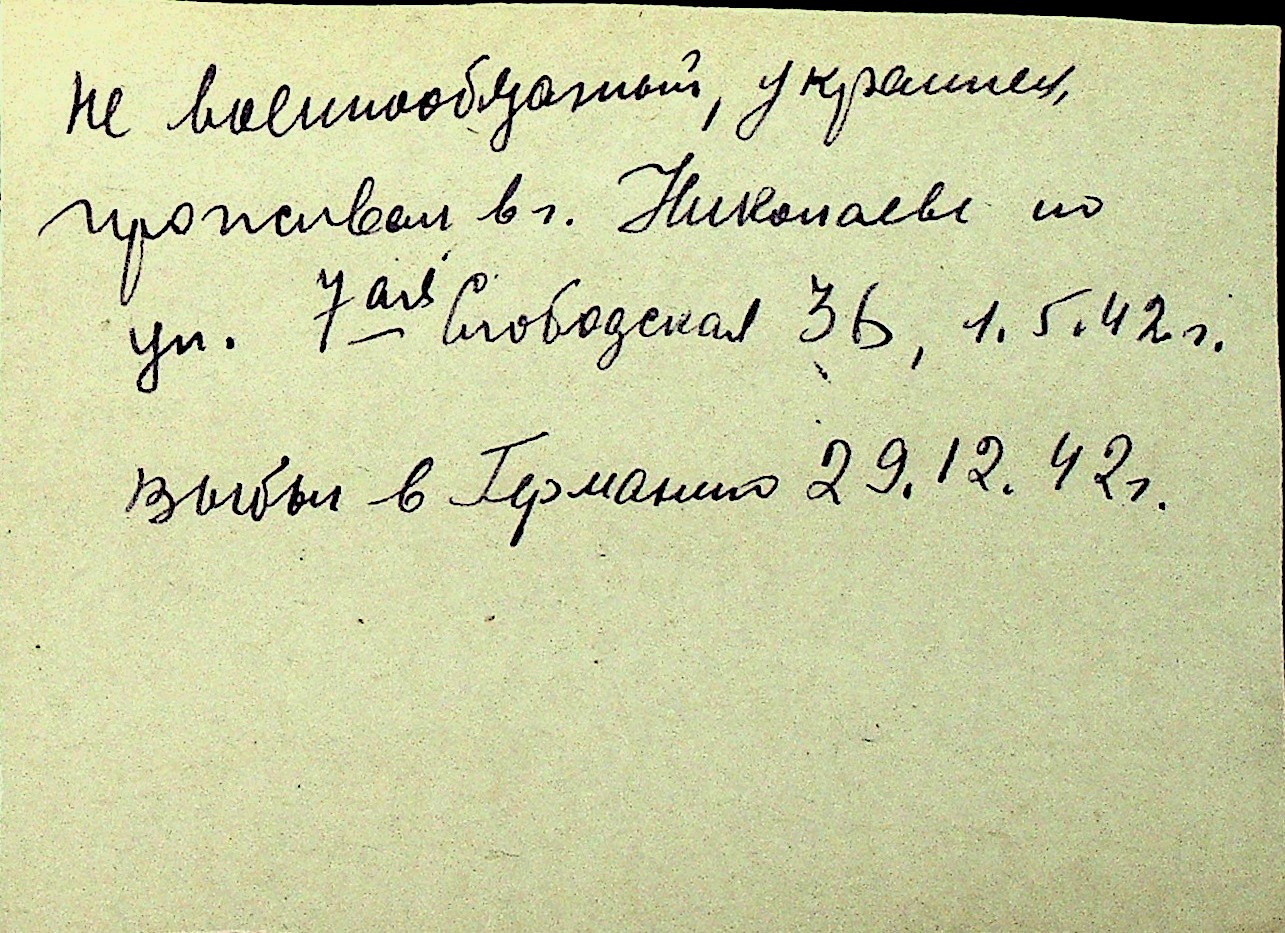 Не военнообязанный, украинец,
проживал в г. Николаеве по
ул. 7ая Слободская 3Б, 1.5.42 г.
Выбыл в Германию 29.12.42 г.